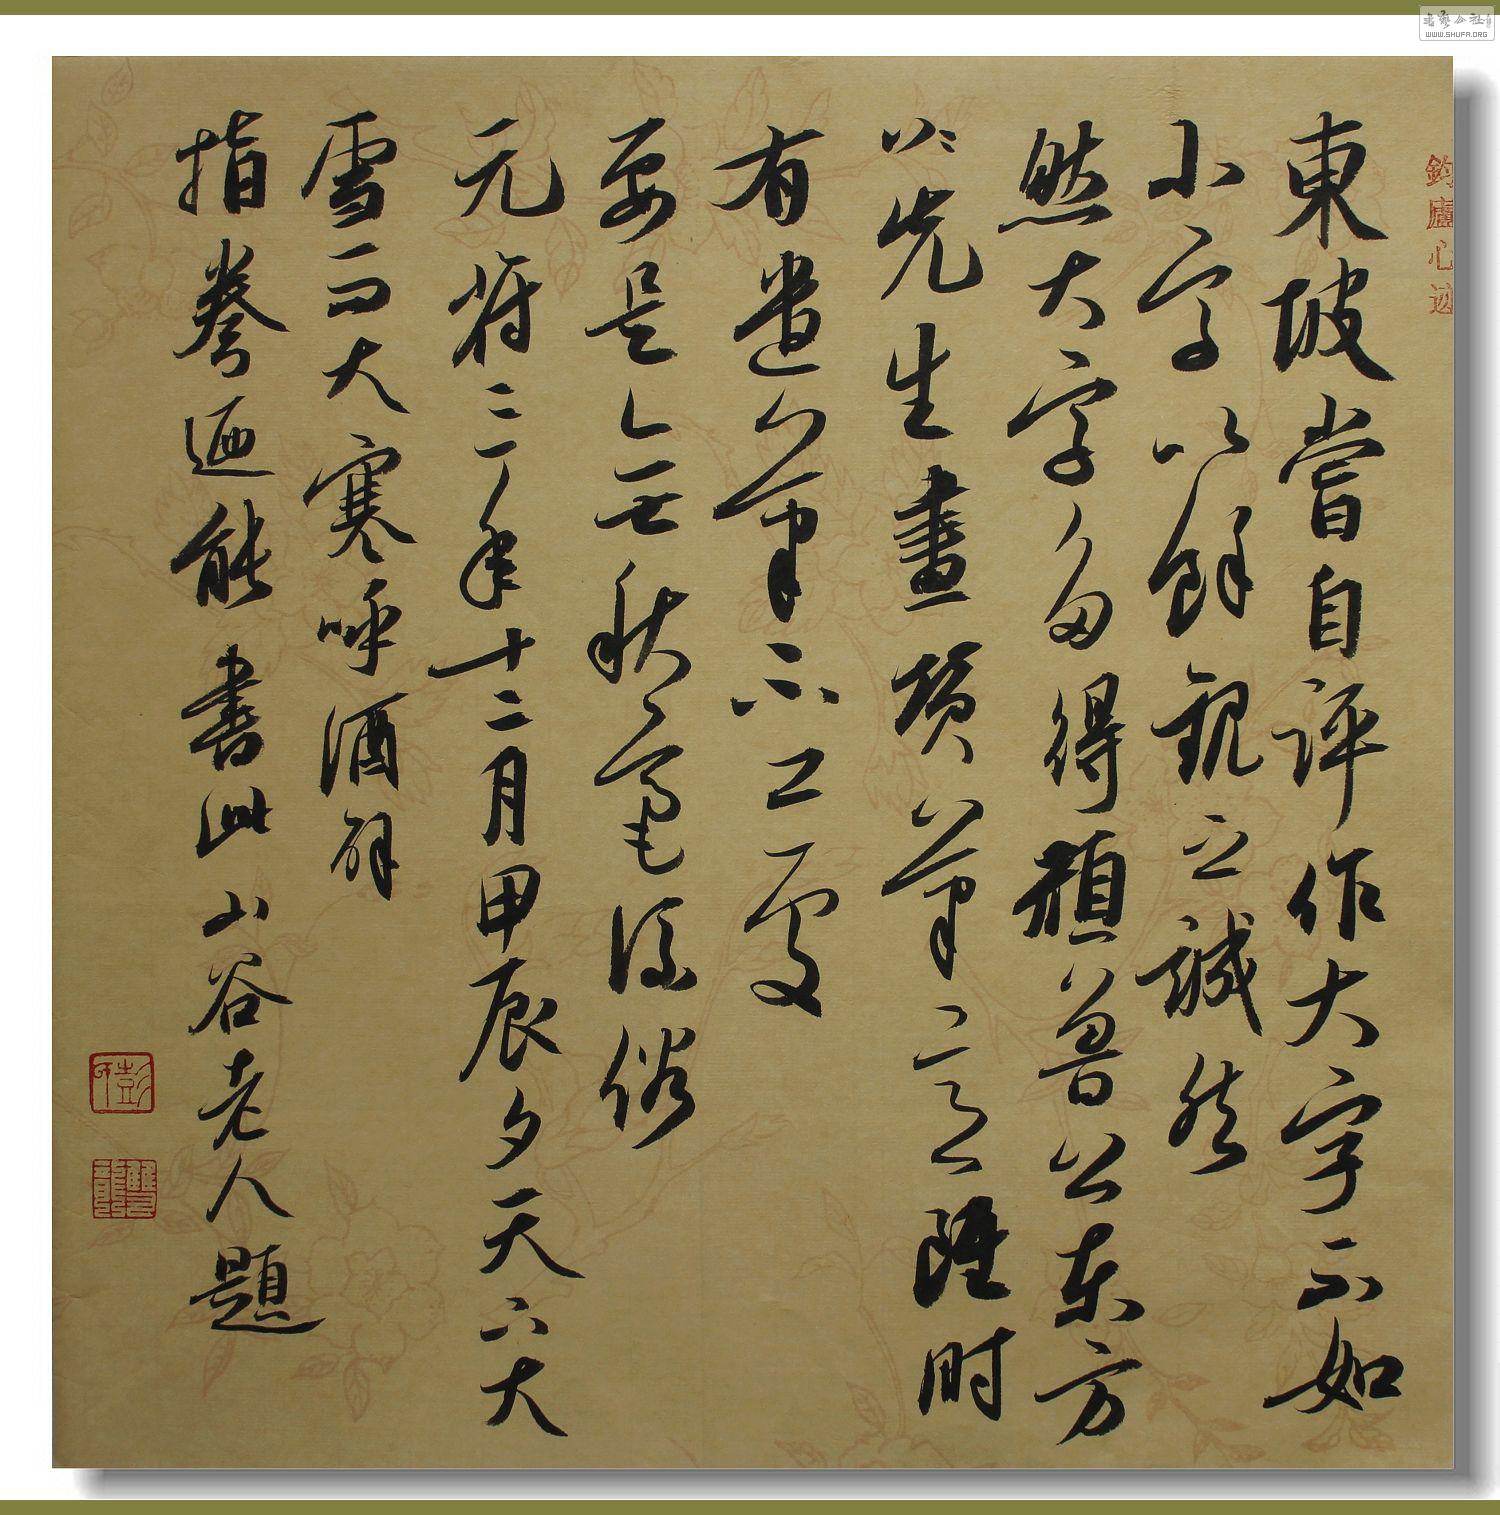 鈞廬心迹
東坡嘗自評作大字不如
小字以餘觀之誠然
然大字多得顏魯公東方
先生畫贊筆意雖時
有遣筆不工處
要是無秋毫流俗
元符三年十二月甲辰夕天下大
雪而大寒呼酒解
指拳迺能書此山谷老人題
書藝公社
WWW.SHUFA.ORG